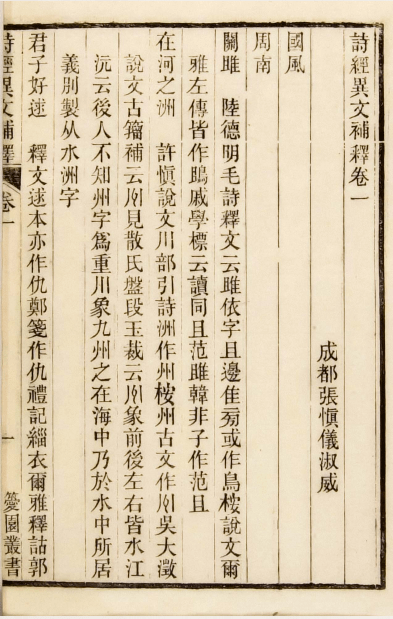 詩經異文補釋卷一
成都張慎儀淑威
國風
周南
關雎　陸德明毛詩釋文云雎依字且邊隹旁或作鳥桉說文爾
雅左傳皆作鴡戚學標云讀同且范雎韓非子作范且
在河之洲　許慎說文川部引詩洲作州桉州古文作吳大澂
說文古籀補云見散氏盤段玉裁云象前後左右皆水江
沅云後人不知州字爲重川象九州之在海中乃於水中所居
義別製从水洲字
君子好逑　釋文逑本亦作仇鄭箋作仇禮記緇衣爾雅釋詁郭
詩經異文補釋　卷一　一　園叢書